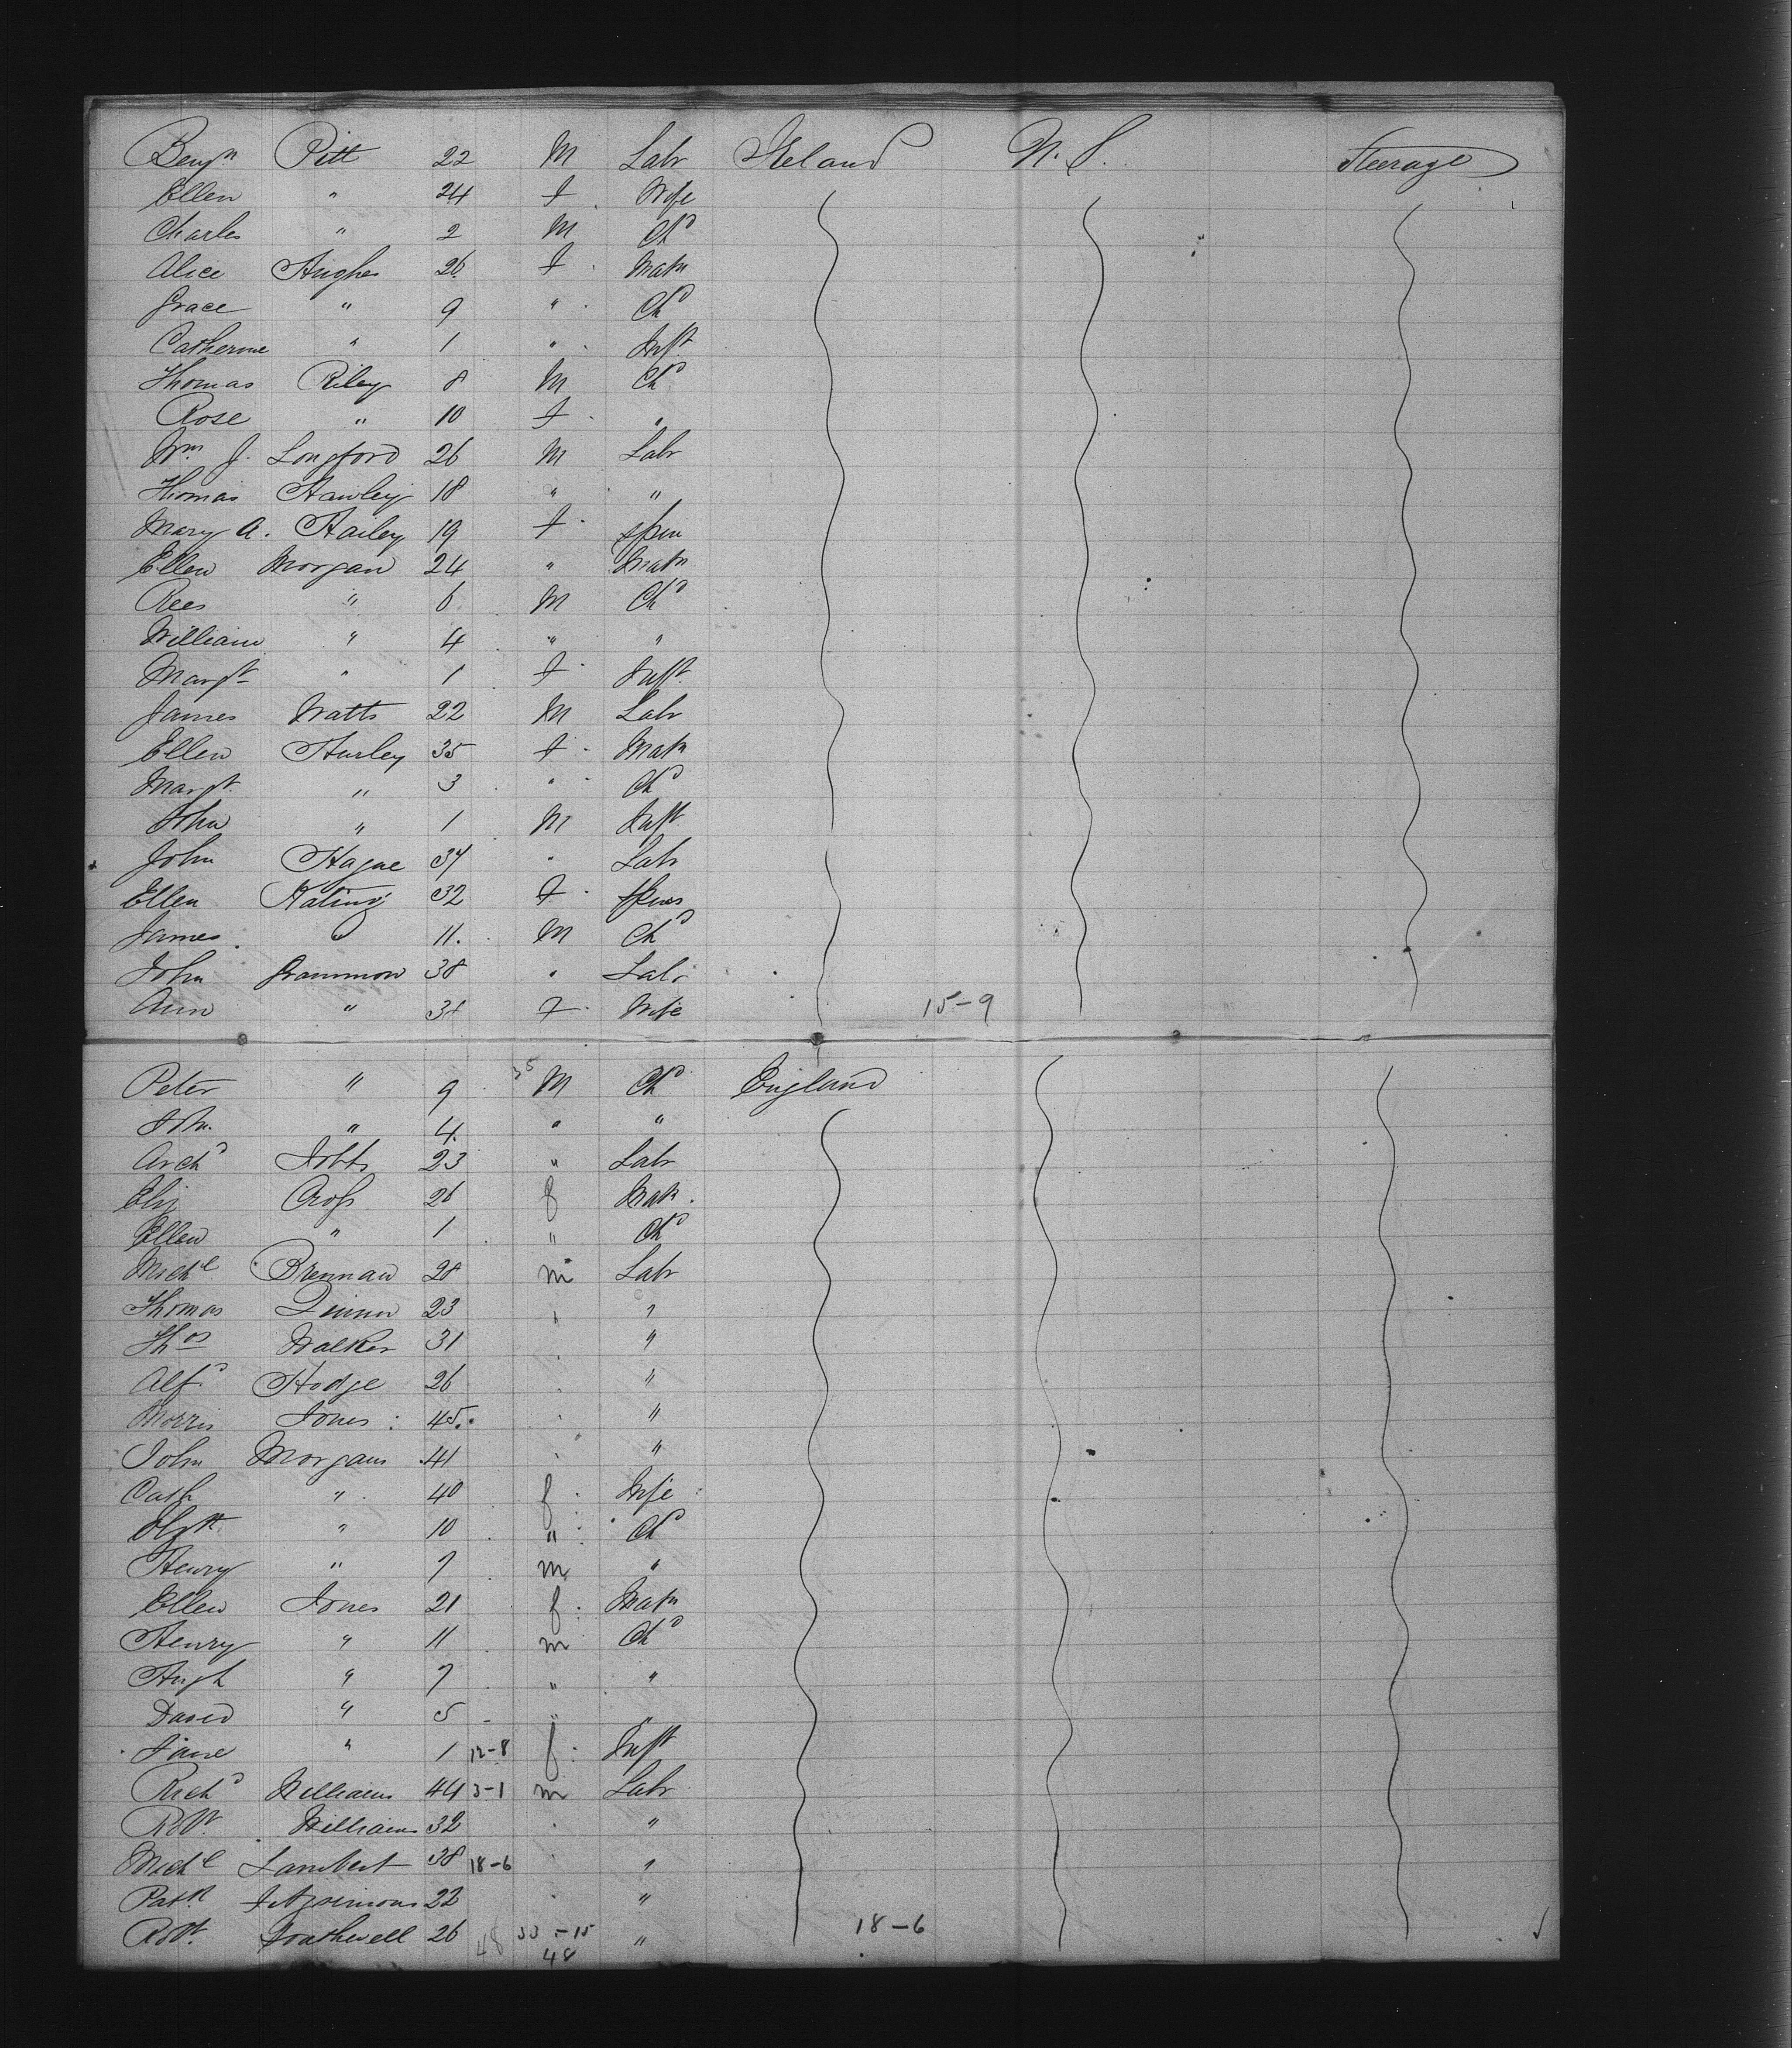 Benjn Pitt 22 M Labr Ireland U.S. Steerage
Ellen " 24 f Wife
Charles " 2 M Chd
Alice Hughes 26 f Matn
Grace " 9 " Chd
Catherine " 1 " Inft
Thomas Riley 8 M Chd
Rose " 10 f "
Wm J. Longford 26 M Labr
Thomas Hawley 18 " "
Mary A. Hailey 19 f Spin
Ellen Morgan 24 " Matn
Rees " 6 M Chd
William " 4 " "
Margt " 1 f Inft
James Watts 22 M Labr
Ellen Hurley 35 f Matn
Margt " 3 " Chd
John " 1 M Inft
John Hague 37 " Labr
Ellen Kating 32 f Spins
James " 11. M Chd
John Grammon 38 " Labr
Ann " 34 f Wife 15-9
Peter " 9 35 M Chd England
Jn. " 4. " "
Archd 23 " Labr
Eliz Cross 26 f Matn
Ellen " 1 " Chd
Michl Brennan 28 m Labr
Thomas Quinn 23 " "
Thos Walker 31 " "
Alfd Hodge 26 " "
Morris Jones 45. " "
John Morgans 41 " "
Cath " 40 f Wife
Elizth " 10 " Chd
Henry " 7 m "
Ellen Jones 21 f Matn
Henry " 11 m Chd
Hugh " 7 " "
David " 5 " "
Jane " 1 12-8 f Inft
Richd Williams 44 3-1 m Labr
Robt. Williams 32 " "
Michl Lambert 38 18-6 " "
Patk Fitzsimons 22 " "
Robt. Southwell 26 48 33-15 " 18-6
48